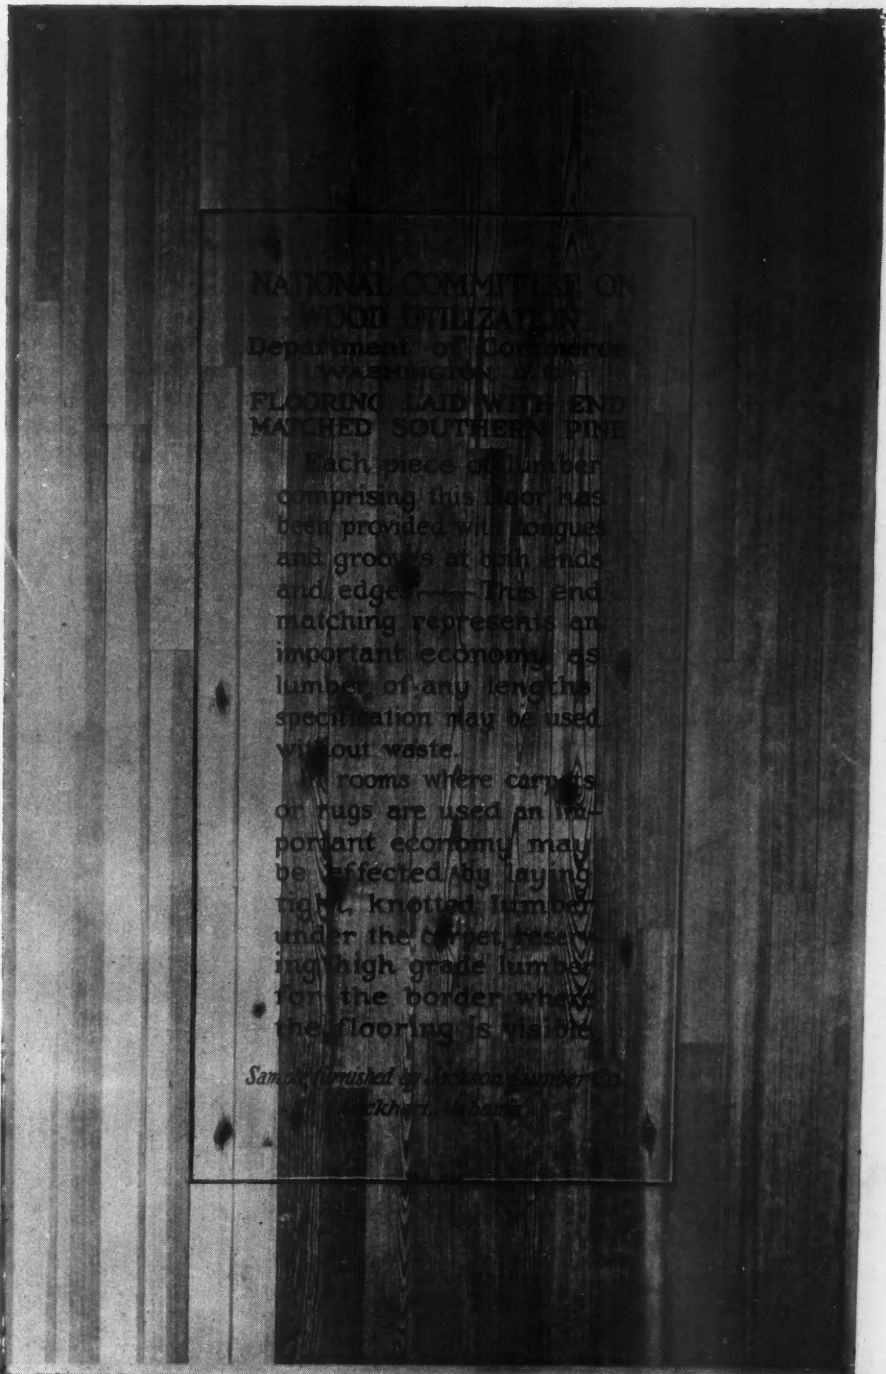 NATIONAL COMMITTEE ON
WOOD UTILIZATION
Department of Commerce
WASHINGTON D.C.
FLOORING LAID WITH END
MATCHED SOUTHERN PINE
Each piece of lumber
comprising this floor has
been provided with tongues
and grooves at both ends
and edges — This end
matching represents an
important economy, as
lumber of any lengths
specification may be used
without waste.
In rooms where carpets
or rugs are used an im-
portant economy may
be effected by laying
tight, knotted lumber
under the carpet, reserv-
ing high grade lumber
for the border where
the flooring is visible
Sample furnished by Jackson Lumber Co.
Lockhart, Alabama